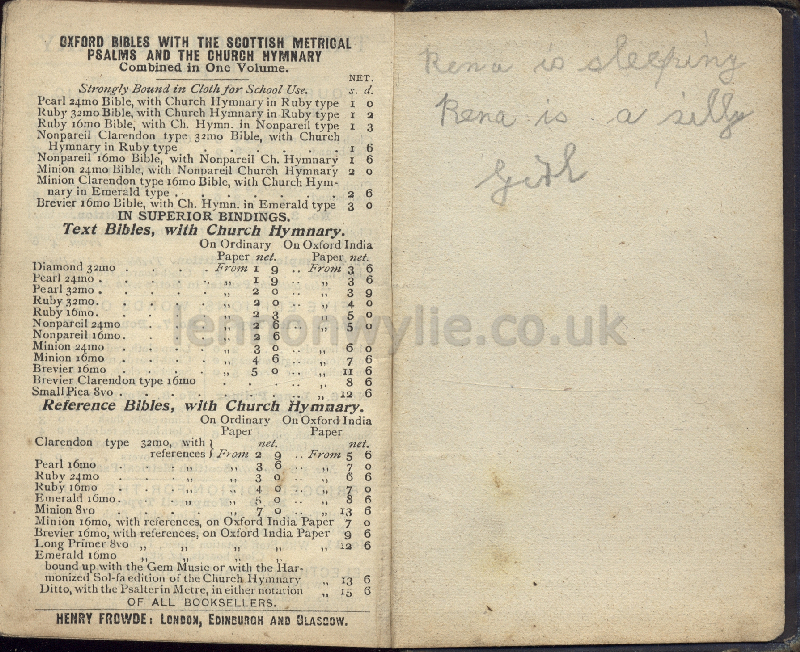 OXFORD BIBLES WITH THE SCOTTISH METRICAL
PSALMS AND THE CHURCH HYMNARY
Combined in One Volume.
NET.
Strongly Bound in Cloth for School Use. s. d.
Pearl 24mo Bible, with Church Hymnary in Ruby type 1 0
Ruby 32mo Bible, with Church Hymnary in Ruby type 1 2
Ruby 16mo Bible, with Ch. Hymn. in Nonpareil type 1 3
Nonpareil Clarendon type 32mo Bible, with Church
Hymnary in Ruby type . . . . . . 1 6
Nonpareil 16mo Bible, with Nonpareil Ch. Hymnary 1 6
Minion 24mo Bible, with Nonpareil Church Hymnary 2 0
Minion Clarendon type 16mo Bible, with Church Hym-
nary in Emerald type . . . . . . 2 6
Brevier 16mo Bible, with Ch. Hymn. in Emerald type 3 0
IN SUPERIOR BINDINGS.
Text Bibles, with Church Hymnary.
On Ordinary On Oxford India
Paper net. Paper net.
Diamond 32mo . . . . From 1 9 .. From 3 6
Pearl 24mo . . . . . „ 1 9 .. „ 3 6
Pearl 32mo . . . . . „ 2 0 .. „ 3 9
Ruby 32mo. . . . . „ 2 0 .. „ 4 0
Ruby 16mo. . . . . „ 2 3 .. „ 5 0
Nonpareil 24mo . . . . „ 2 6 .. „ 5 0
Nonpareil 16mo. . . . . „ 2 6
Minion 24mo . . . . „ 3 0 .. „ 6 0
Minion 16mo . . . . „ 4 6 .. „ 7 6
Brevier 16mo . . . . „ 5 0 .. „ 11 6
Brevier Clarendon type 16mo . . . . „ 8 6
Small Pica 8vo . . . . . . . „ 12 6
Reference Bibles, with Church Hymnary.
On Ordinary On Oxford India
Paper Paper
Clarendon type 32mo, with } net. net.
references } From 2 9 .. From 5 6
Pearl 16mo . . „ . „ 3 6 .. „ 7 0
Ruby 24mo . . „ . „ 3 0 .. „ 6 6
Ruby 16mo . . „ . „ 4 0 .. „ 7 0
Emerald 16mo. . „ . „ 5 0 .. „ 8 6
Minion 8vo . . „ . „ 7 0 .. „ 13 6
Minion 16mo, with references, on Oxford India Paper 7 0
Brevier 16mo, with references, on Oxford India Paper 9 6
Long Primer 8vo „ „ „ „ „ 12 6
Emerald 16mo „ „ „ „
bound up with the Gem Music or with the Har-
monized Sol-fa edition of the Church Hymnary „ 13 6
Ditto, with the Psalter in Metre, in either notation „ 15 6
OF ALL BOOKSELLERS.
HENRY FROWDE: LONDON, EDINBURGH AND GLASGOW.
Rena is sleeping
Rena is a silly
Girl
lennonwylie.co.uk